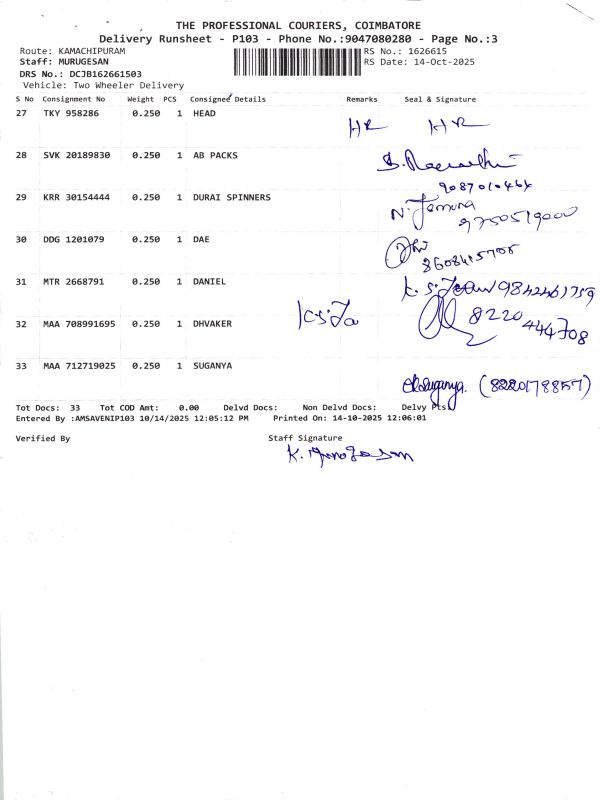 THE PROFESSIONAL COURIERS, COIMBATORE
Delivery Runsheet - P103 - Phone No.:9047080280 - Page No.:3
Route: KAMACHIPURAM RS No.: 1626615
Staff: MURUGESAN RS Date: 14-Oct-2025
DRS No.: DCJB162661503
Vehicle: Two Wheeler Delivery
S No Consignment No Weight PCS Consigned Details Remarks Seal & Signature
27 TKY 958286 0.250 1 HEAD
HR HR
28 SVK 20189830 0.250 1 AB PACKS
9087010464
29 KRR 30154444 0.250 1 DURAI SPINNERS
N. Jamuna
9750519000
30 DDG 1201079 0.250 1 DAE
8608415705
31 MTR 2668791 0.250 1 DANIEL
9842461759
32 MAA 708991695 0.250 1 DHVAKER
8220
444708
33 MAA 712719025 0.250 1 SUGANYA
(8220178857)
Tot Docs: 33 Tot COD Amt: 0.00 Delvd Docs: Non Delvd Docs: Delvy Pts
Entered By :AMSAVENIP103 10/14/2025 12:05:12 PM Printed On: 14-10-2025 12:06:01
Verified By Staff Signature